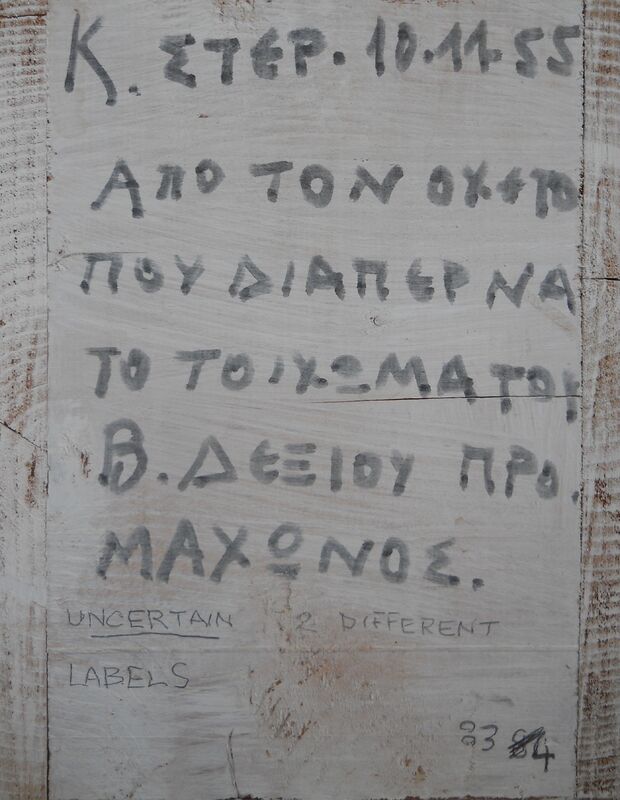 Κ. ΣΤΕΡ. 10.11.55
ΑΠΟ ΤΟΝ ΟΧΕΤΟ
ΠΟΥ ΔΙΑΠΕΡΝΑ
ΤΟ ΤΟΙΧΩΜΑ ΤΟΥ
Β. ΔΕΞΙΟΥ ΠΡΟ.
ΜΑΧΩΝΟΣ.
UNCERTAIN 2 DIFFERENT
LABELS
83 84